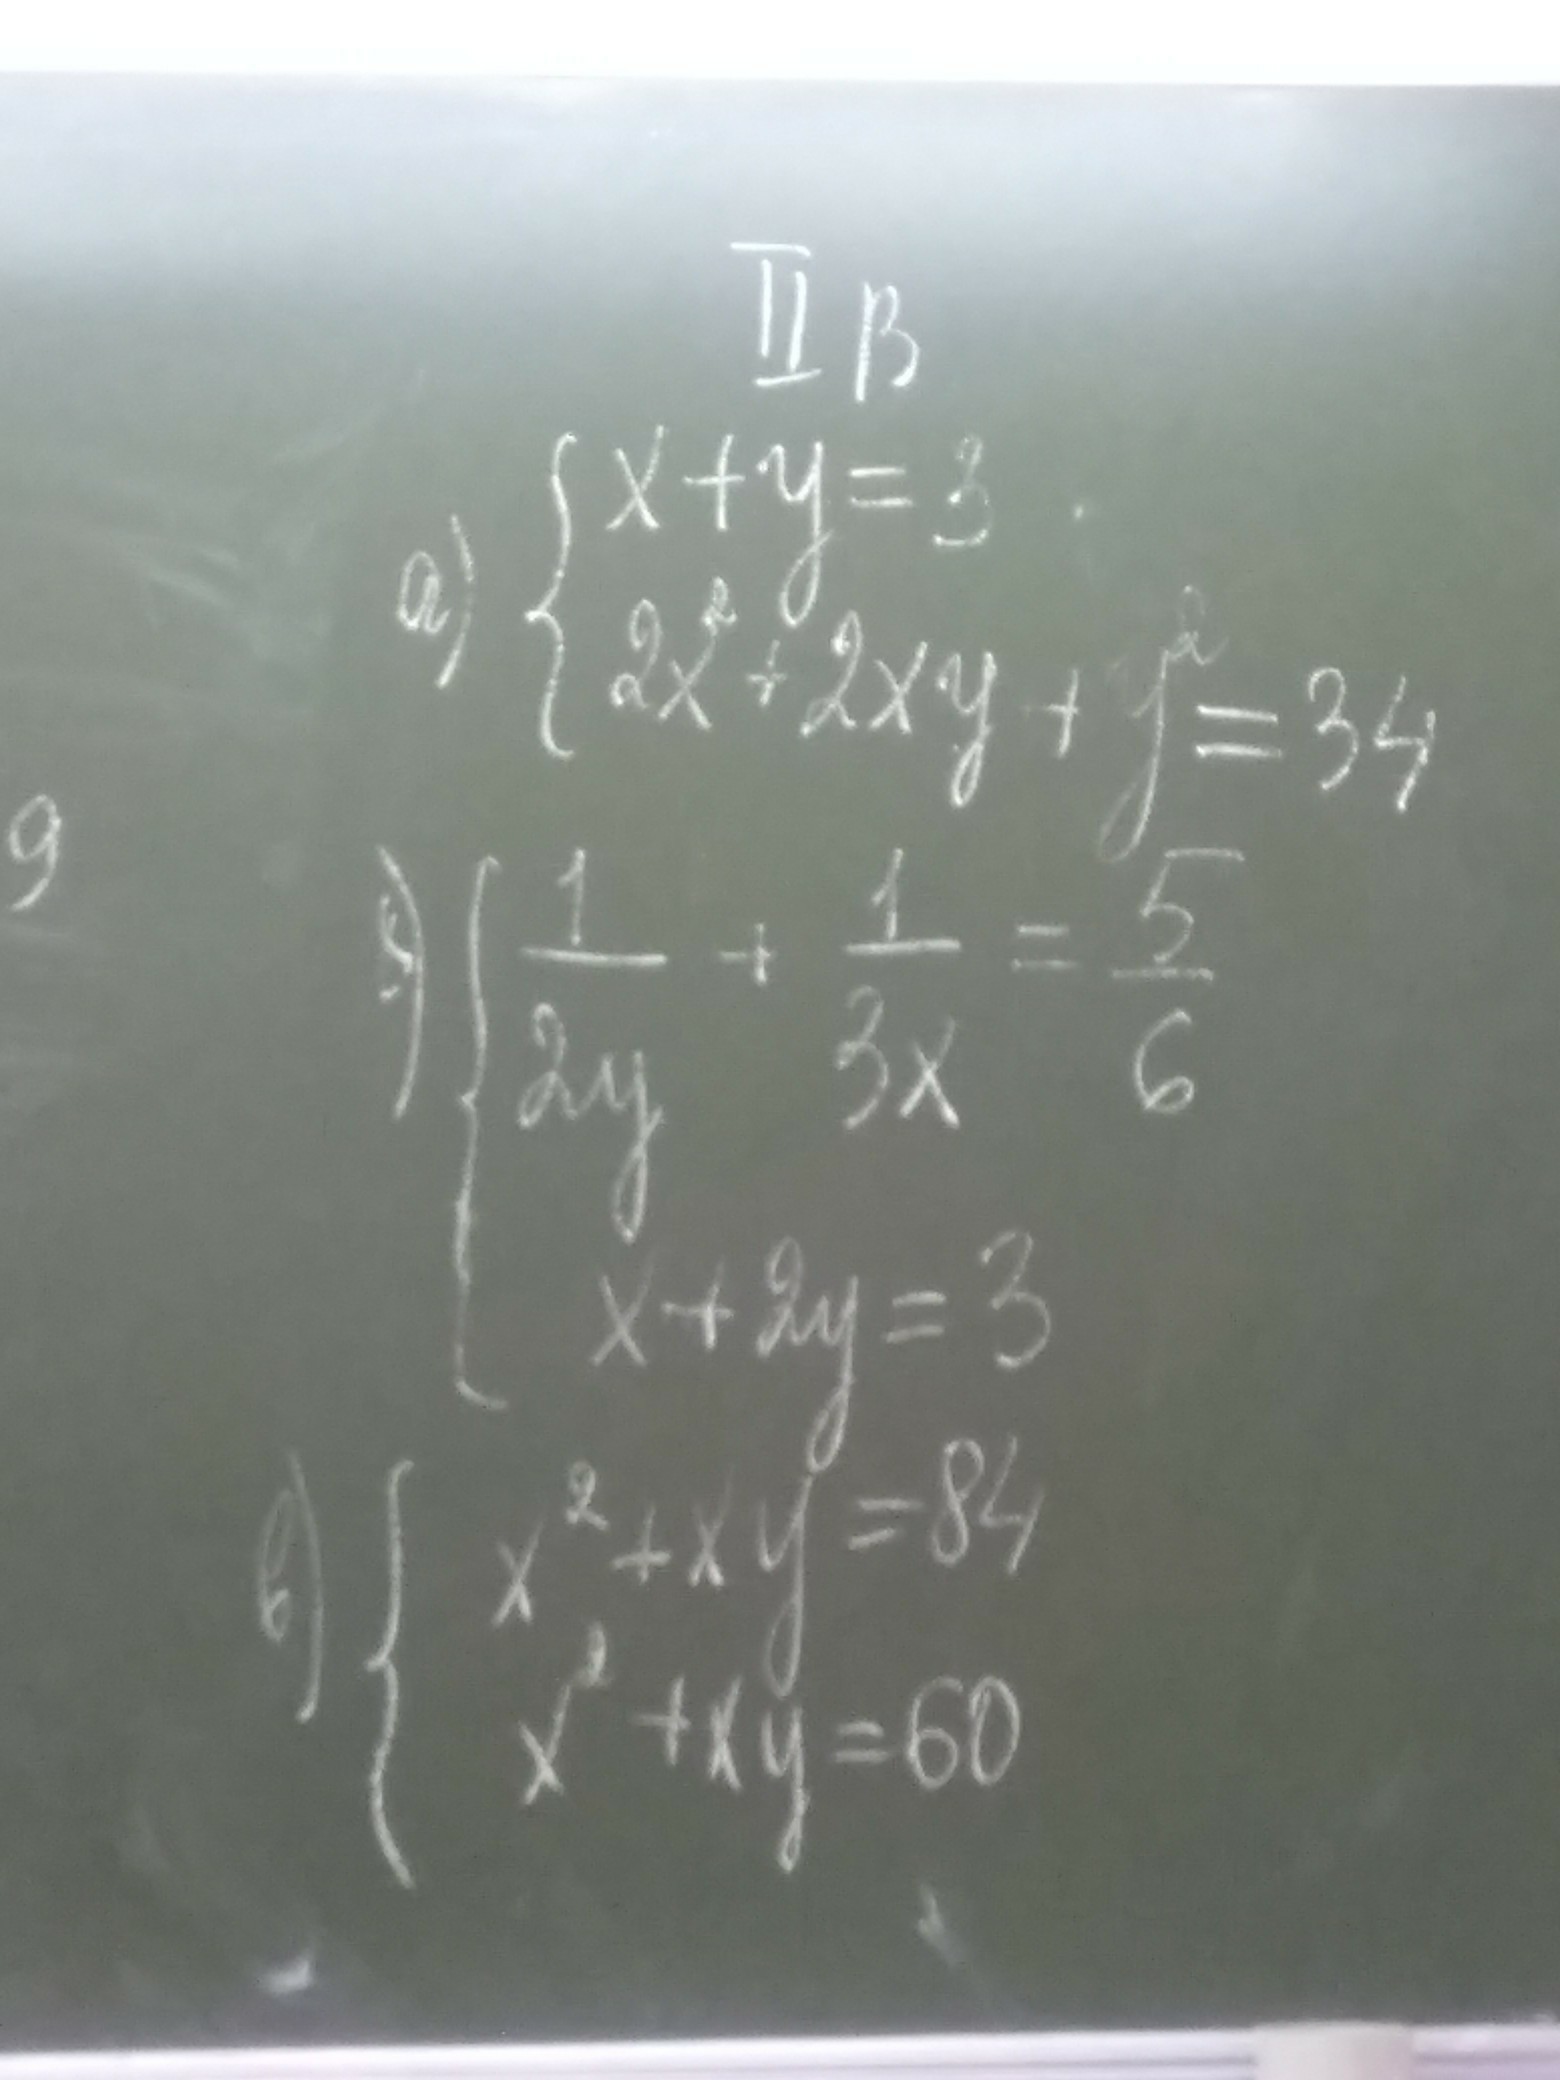 II В
а) { x + y = 3
2x² + 2xy + y² = 34
б) { 1/2y + 1/3x = 5/6
x + 2y = 3
в) { x² + xy = 84
x² + xy = 60
9